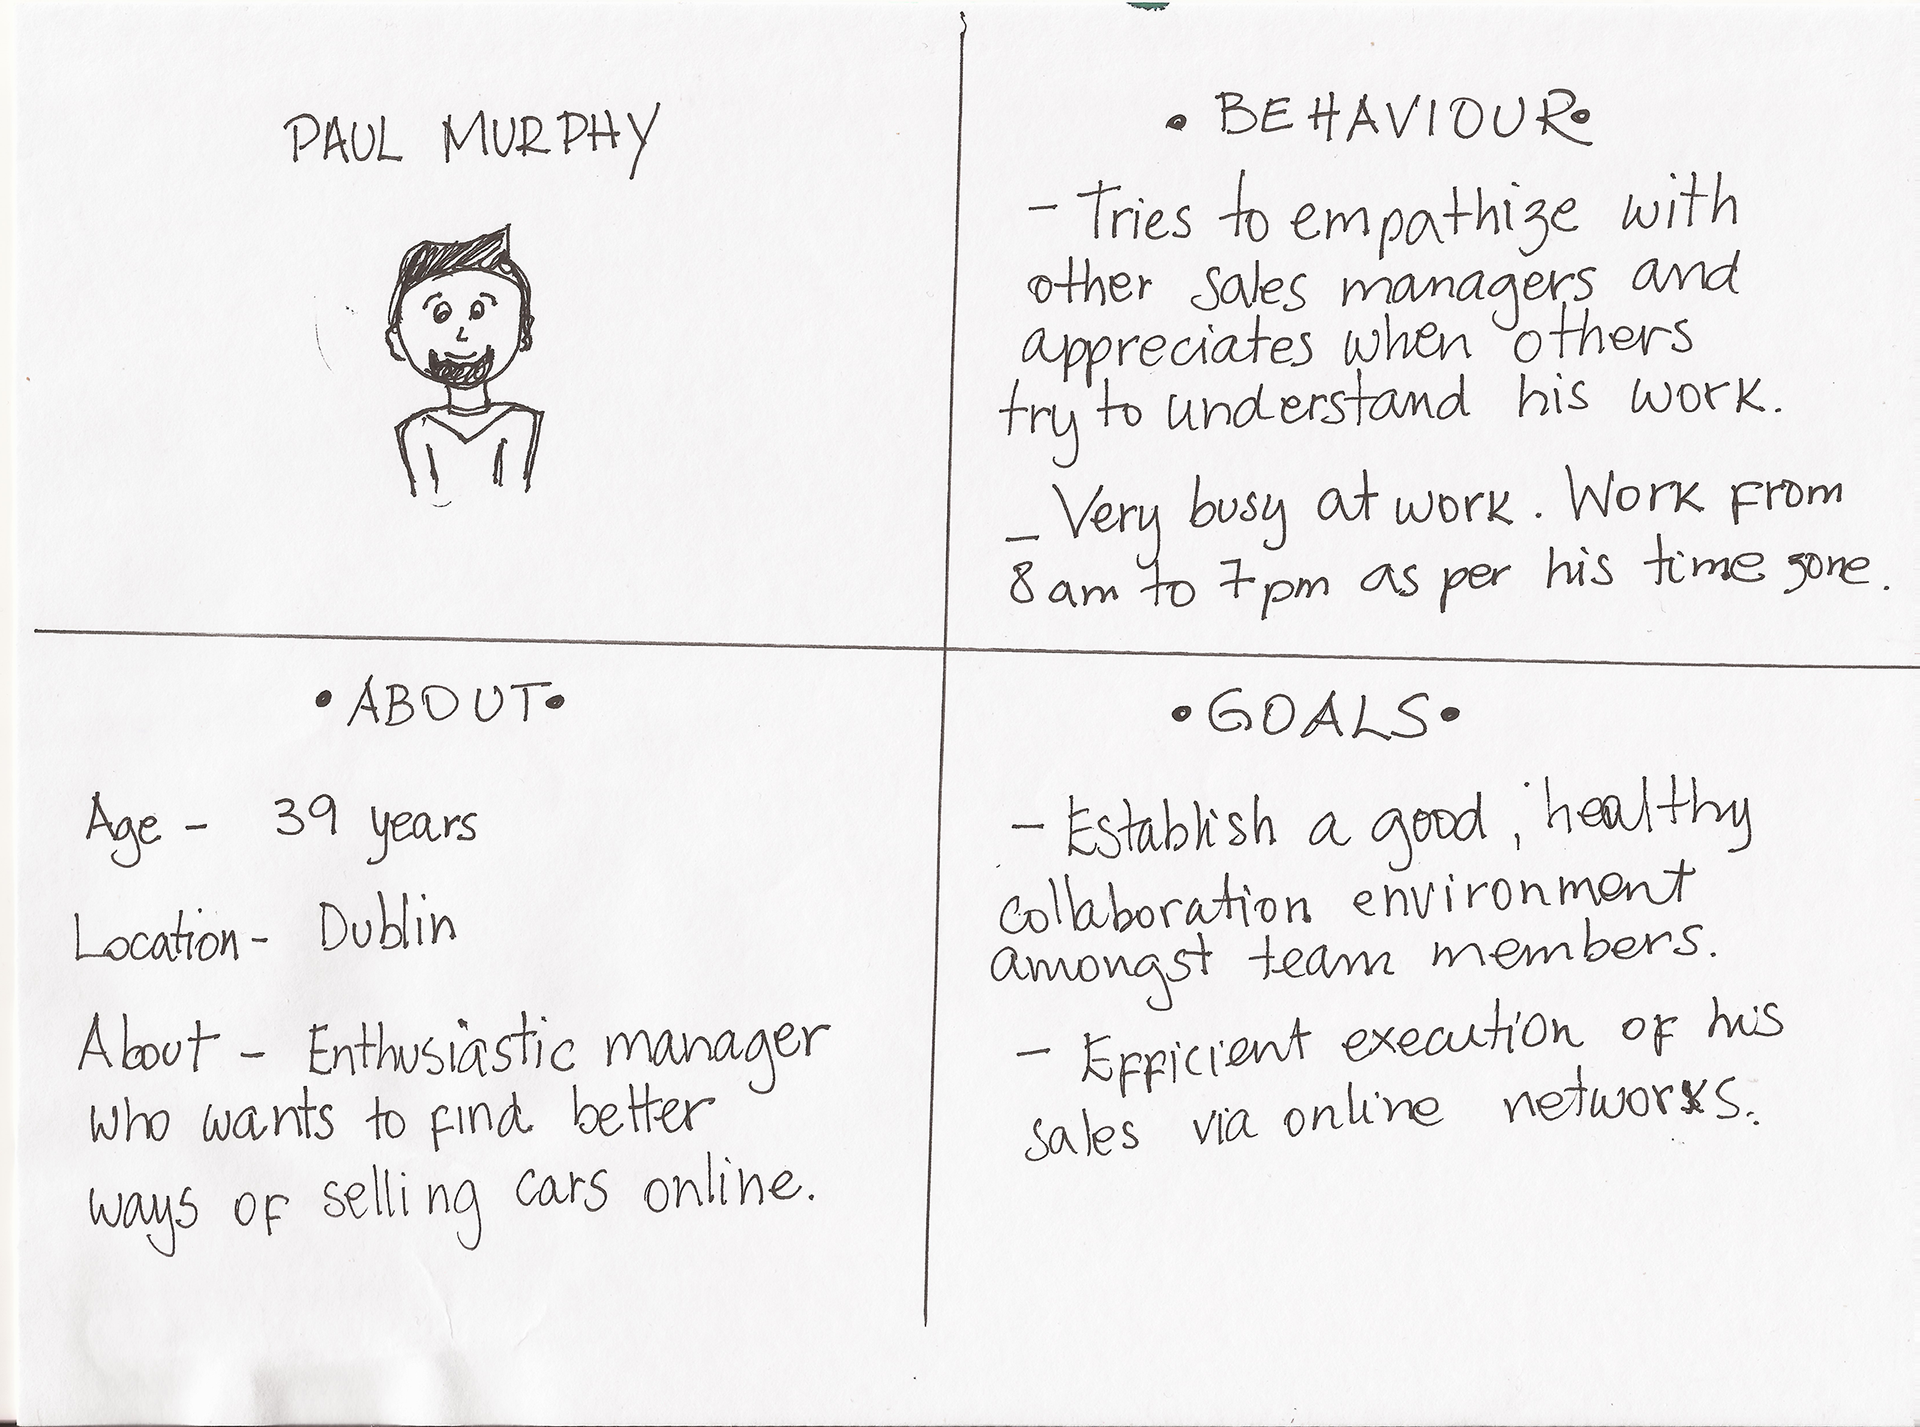 PAUL MURPHY
• BEHAVIOUR •
– Tries to empathize with
other sales managers and
appreciates when others
try to understand his work.
– Very busy at work. Work from
8am to 7pm as per his time zone.
• ABOUT •
Age – 39 years
Location – Dublin
About – Enthusiastic manager
who wants to find better
ways of selling cars online.
• GOALS •
– Establish a good, healthy
collaboration environment
amongst team members.
– Efficient execution of his
sales via online networks.